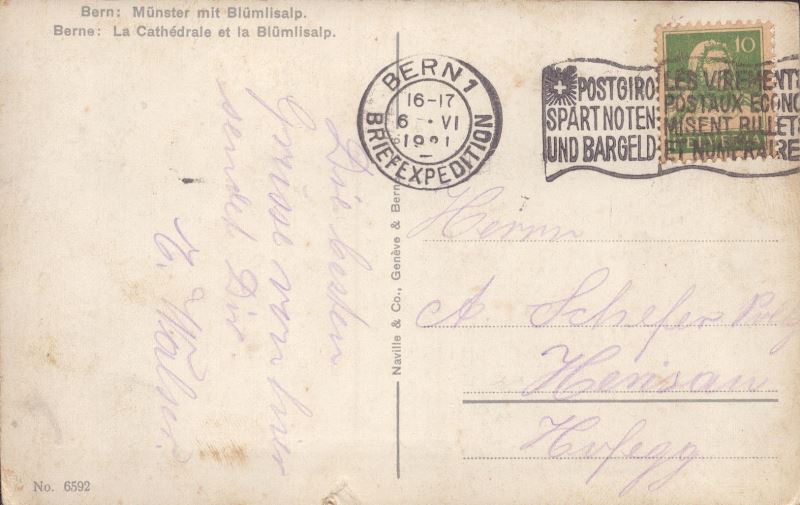 Bern: Münster mit Blümlisalp.
Berne: La Cathédrale et la Blümlisalp.
Die besten
Grüsse von hier
sendet Dir
Naville & Co., Genève & Bern
No. 6592
BERN 1
16-17
6 · VI
1921
BRIEFEXPEDITION
POSTGIRO
SPART NOTEN
UND BARGELD
LES VIREMENTS
POSTAUX ECONO
MISENT BILLETS
ET NUMERAIRE
10
Herrn
A. Schefer
Herisau
Hofegg